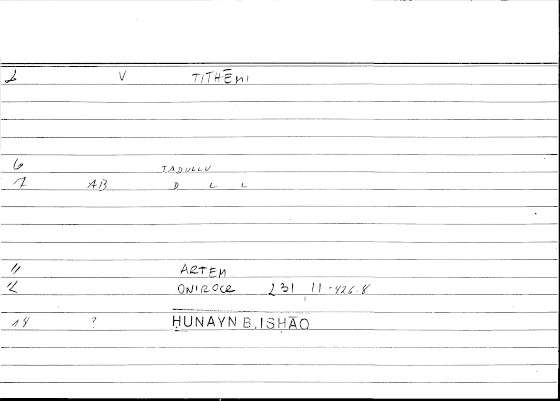 1 V TITHĒMI
6 TADULLU
7 AB D L L
11 ARTEM
12 ONIROCR 231 11-426-8
14 ? ḤUNAYN B. ISḤĀQ